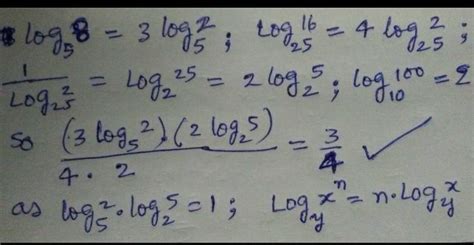 log₅8 = 3 log₅2 ; Log₂₅16 = 4 log₂₅2 ;
1/Log₂₅2 = Log₂25 = 2 log₂5 ; log₁₀100 = 2
So (3 log₅2) . (2 log₂5) / 4 . 2 = 3/4 ✓
as log₅2 . log₂5 = 1 ; Log_y xⁿ = n . Log_y x